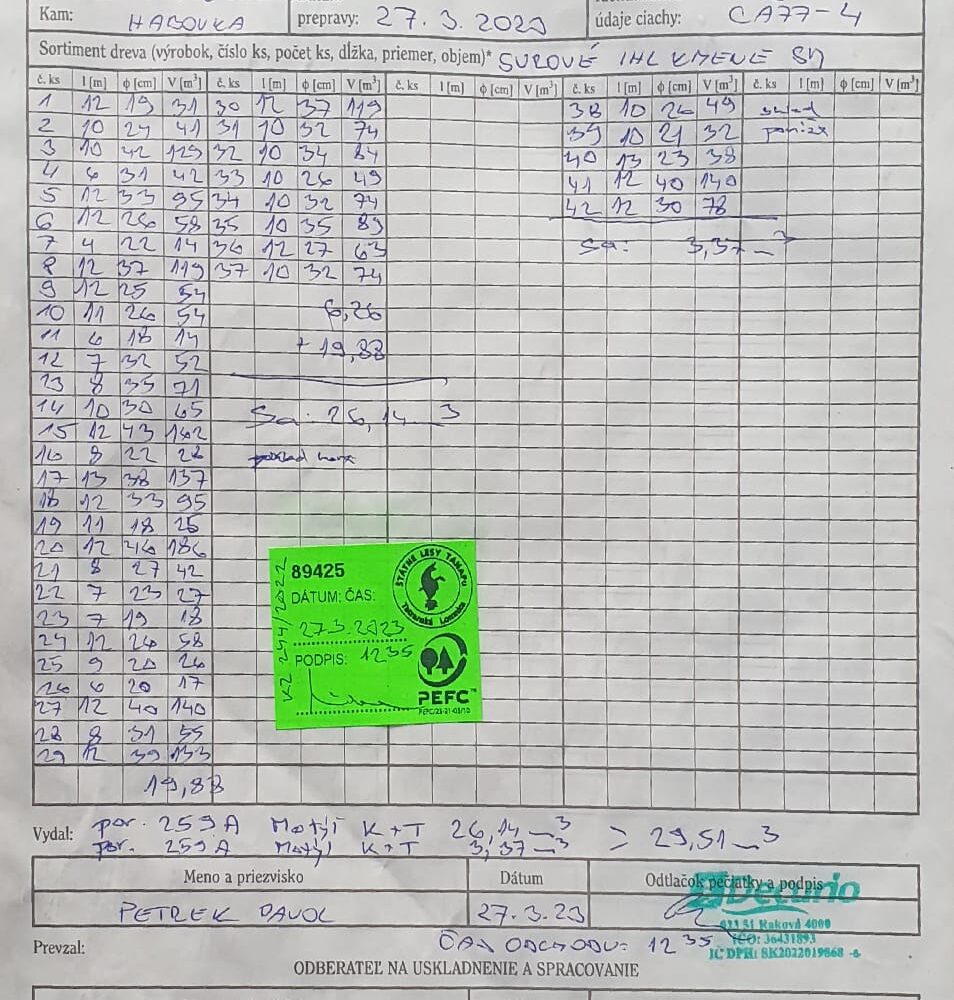 Kam: HABOVKA prepravy: 27. 3. 2023 údaje ciachy: CA77-4
Sortiment dreva (výrobok, číslo ks, počet ks, dĺžka, priemer, objem)* SUROVÉ IHL KMENE SM
č. ks l [m] ϕ [cm] V [m³] č. ks l [m] ϕ [cm] V [m³] č. ks l [m] ϕ [cm] V [m³] č. ks l [m] ϕ [cm] V [m³] č. ks l [m] ϕ [cm] V [m³]
1 12 19 31 30 12 37 119 38 10 26 49 sklad
2 10 24 41 31 10 32 74 39 10 21 32
3 10 42 129 32 10 34 84 40 13 23 38
4 6 31 42 33 10 26 49 41 12 40 140
5 12 33 95 34 10 32 74 42 12 30 78
6 12 26 58 35 10 35 89
7 4 22 14 36 12 27 63 Sa: 3,37 m3
8 12 37 119 37 10 32 74
9 12 25 54
10 11 26 54 6,26
11 6 18 14 + 19,88
12 7 32 52
13 8 35 71
14 10 30 65 Sa: 26,14 m3
15 12 43 162
16 8 22 28
17 13 38 137
18 12 33 95
19 11 18 25
20 12 46 186
21 8 27 42
22 7 23 27
23 7 19 18
24 12 26 58
25 9 20 26
26 6 20 17
27 12 40 140
28 8 31 55
29 12 39 133
19,88
89425
DÁTUM: ČAS:
27.3.2023
PODPIS: 1235
KZ 244/2022
ŠTÁTNE LESY TANAPU
Tatranská Lomnica
PEFC™
Vydal: por. 259 A Motýl K+T 26,14 m3 > 29,51 m3
por. 259 A Motýl K+T 3,37 m3
Meno a priezvisko Dátum Odtlačok pečiatky a podpis
PETREK PAVOL 27.3.23
Decurio
023 51 Raková 4000
IČO: 36431893
IČ DPH: SK2022019868 -6
Prevzal: ČAS ODCHODU: 12 35
ODBERATEĽ NA USKLADNENIE A SPRACOVANIE